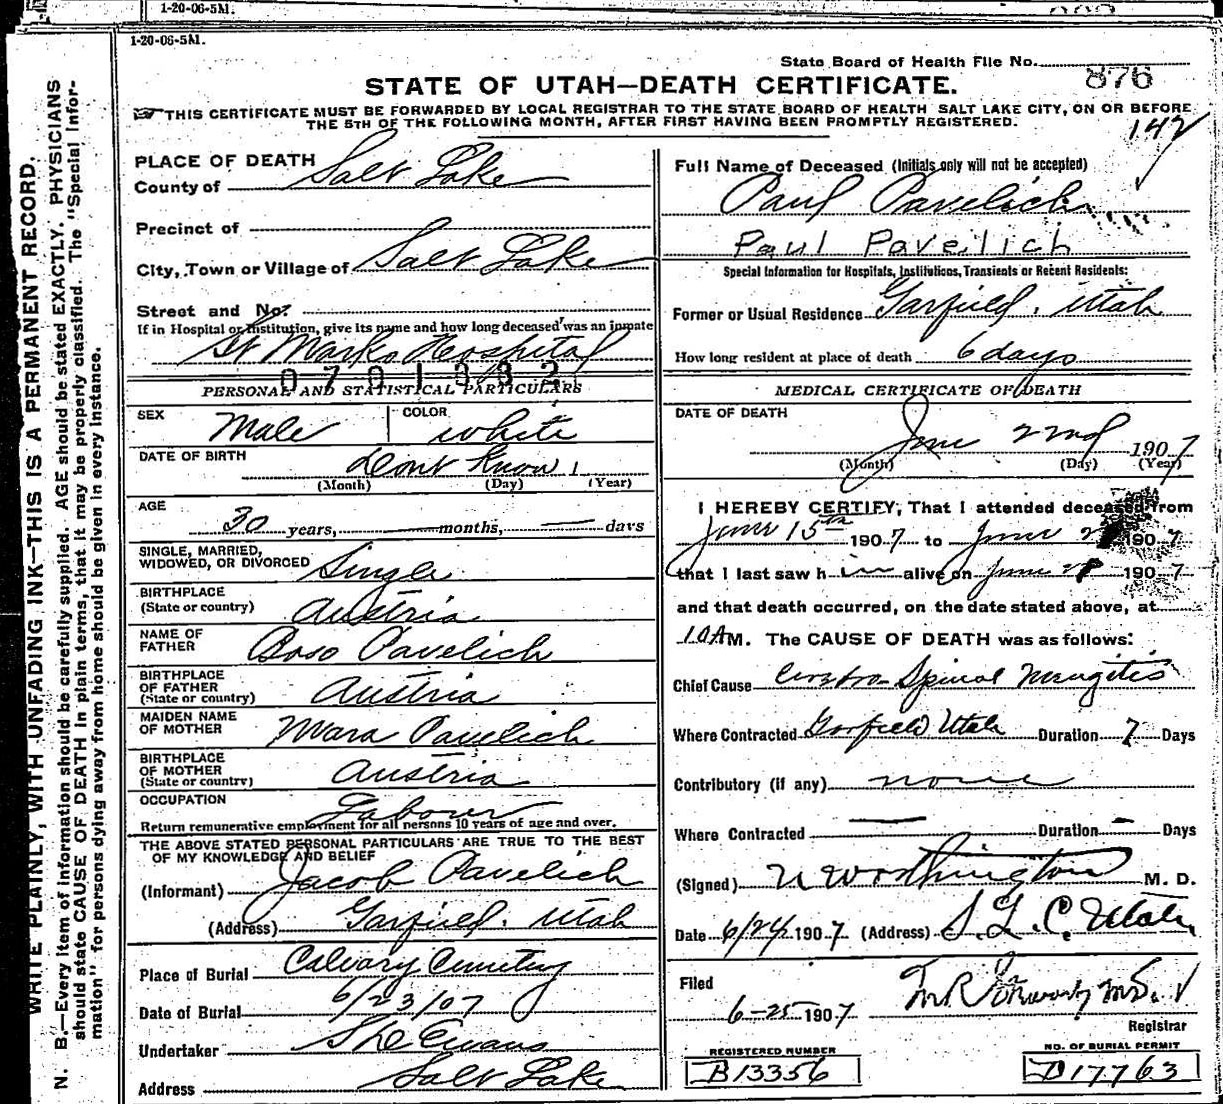 1-20-06-5M.
1-20-06-5M.
State Board of Health File No. 876
STATE OF UTAH—DEATH CERTIFICATE.
THIS CERTIFICATE MUST BE FORWARDED BY LOCAL REGISTRAR TO THE STATE BOARD OF HEALTH SALT LAKE CITY, ON OR BEFORE
THE 5TH OF THE FOLLOWING MONTH, AFTER FIRST HAVING BEEN PROMPTLY REGISTERED.
142
WRITE PLAINLY, WITH UNFADING INK—THIS IS A PERMANENT RECORD.
N. B.—Every item of information should be carefully supplied. AGE should be stated EXACTLY. PHYSICIANS
should state CAUSE OF DEATH in plain terms, that it may be properly classified. The "Special Infor-
mation" for persons dying away from home should be given in every instance.
PLACE OF DEATH
County of Salt Lake
Precinct of
City, Town or Village of Salt Lake
Street and No.
If in Hospital or Institution, give its name and how long deceased was an inmate
St Marks Hospital
0701332
PERSONAL AND STATISTICAL PARTICULARS
SEX Male COLOR white
DATE OF BIRTH Dont Know 1
(Month) (Day) (Year)
AGE
30 years, — months, — days
SINGLE, MARRIED,
WIDOWED, OR DIVORCED Single
BIRTHPLACE
(State or country) Austria
NAME OF
FATHER Boso Pavelich
BIRTHPLACE
OF FATHER
(State or country) Austria
MAIDEN NAME
OF MOTHER Mara Pavelich
BIRTHPLACE
OF MOTHER
(State or country) Austria
OCCUPATION Labour
Return remunerative employment for all persons 10 years of age and over.
THE ABOVE STATED PERSONAL PARTICULARS ARE TRUE TO THE BEST
OF MY KNOWLEDGE AND BELIEF
(Informant) Jacob Pavelich
(Address) Garfield. Utah
Place of Burial Calvary Cemetery
Date of Burial 6/23/07
Undertaker Evans
Address Salt Lake
Full Name of Deceased (Initials only will not be accepted)
Paul Pavelich
Paul Paveilich
Special Information for Hospitals, Institutions, Transients or Recent Residents:
Former or Usual Residence Garfield. Utah
How long resident at place of death 6 days
MEDICAL CERTIFICATE OF DEATH
DATE OF DEATH
June 22nd 1907
(Month) (Day) (Year)
I HEREBY CERTIFY, That I attended deceased from
June 15th 1907 to June 1907
that I last saw him alive on June 1907
and that death occurred, on the date stated above, at
10AM. The CAUSE OF DEATH was as follows:
Chief Cause Spinal
Where Contracted Garfield Utah Duration 7 Days
Contributory (if any) none
Where Contracted — Duration — Days
(Signed) Worthington M. D.
Date 6/24 1907 (Address) S. L. C. Utah
Filed
6-25 1907
Registrar
REGISTERED NUMBER
B13356
NO. OF BURIAL PERMIT
D17763